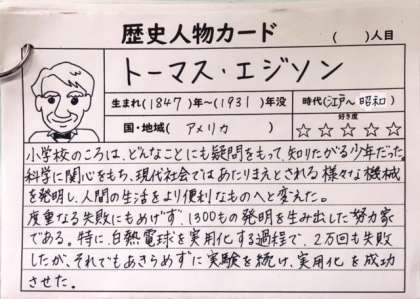 歴史人物カード ( )人目
トーマス・エジソン
生まれ(1847)年~(1931)年没 時代(江戸~昭和)
国・地域( アメリカ ) 好き度
☆☆☆☆☆
小学校のころは、どんなことにも疑問をもって、知りたがる少年だった。
科学に関心をもち、現代社会ではあたりまえとされる様々な機械
を発明し、人間の生活をより便利なものへと変えた。
度重なる失敗にもめげず、1300もの発明を生み出した努力家
である。特に、白熱電球を実用化する過程で、2万回も失敗
したが、それでもあきらめずに実験を続け、実用化を成功
させた。